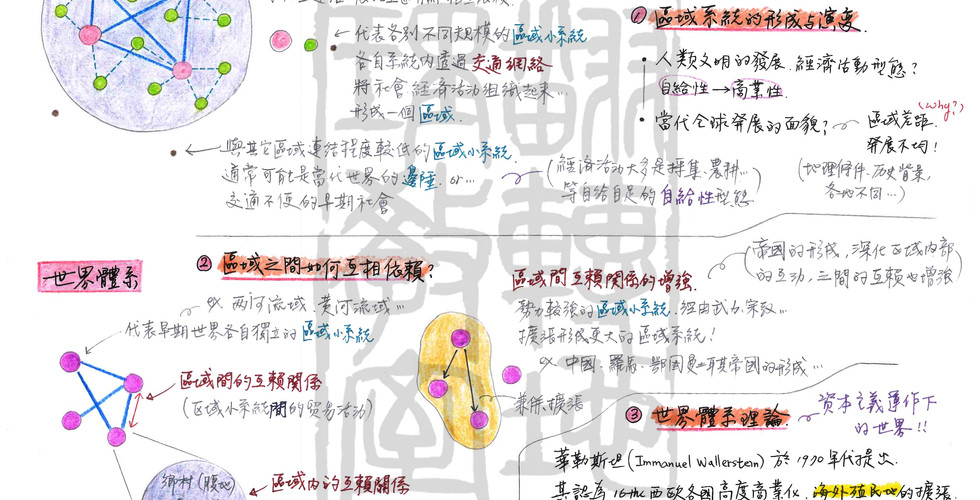 代表各別不同規模的區域小系統
各自系統內透過交通網絡
將社會經濟活動組織起來…
形成一個區域.
與其它區域連結程度較低的區域小系統.
通常可能是當代世界的邊陲. or…
交通不便的早期社會
(經濟活動大多是採集.農耕…)
等自給自足的自給性型態
① 區域系統的形成与演變.
• 人類文明的發展.經濟活動型態?
自給性→商業性.
• 當代全球發展的面貌?
(why?)
區域差距.
發展不均!
(地理條件.历史背景,
各地不同…)
世界體系
② 區域之間如何互相依賴?
兩河流域.黃河流域…
代表早期世界各自獨立的區域小系統
區域間的互賴關係
(区域小系統間的贸易活動)
鄉村(腹地)
區域内的互賴關係
區域間互賴關係的增強.
勢力較強的區域小系統.經由武力.宗教…
擴張形成更大的區域系統!
中国.羅馬.鄂圖曼土耳其帝国的形成…
兼併.擴張
(帝國的形成,深化区域内部
的互動,之間的互賴也增強)
③ 世界體系理論.
資本主義運作下
的世界!!
華勒斯坦(Immanuel Wallerstein) 於1970年代提出.
其認為16th西欧各国高度商業化.海外殖民地的擴張